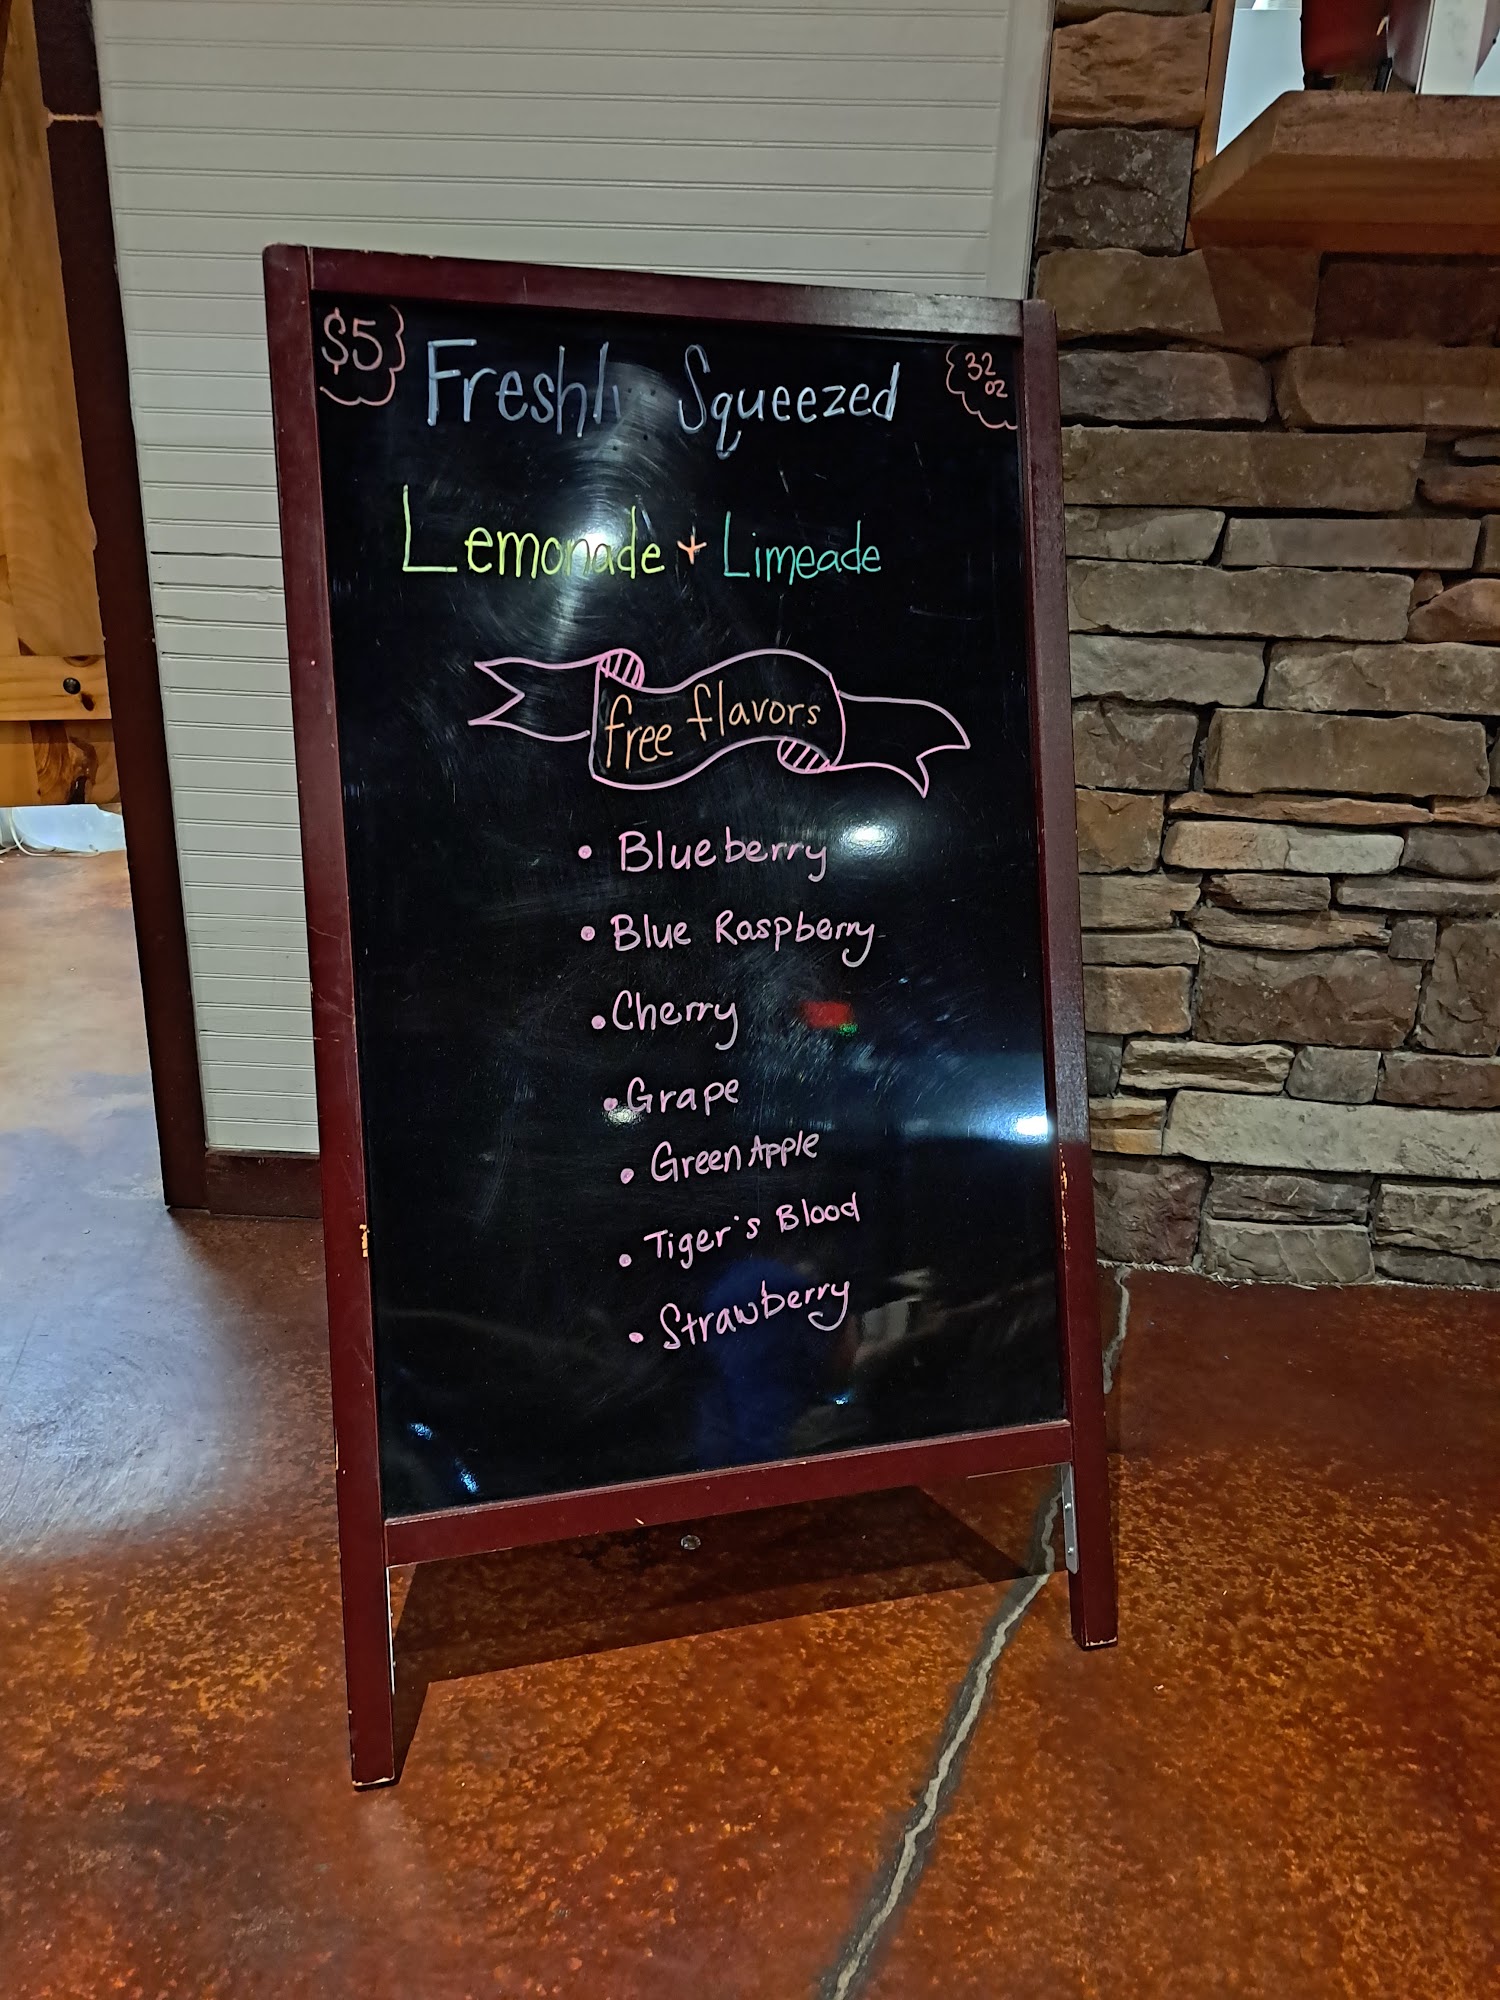 $5
Freshly Squeezed
32
oz
Lemonade + Limeade
free flavors
• Blueberry
• Blue Raspberry
• Cherry
• Grape
• Green Apple
• Tiger's Blood
• Strawberry